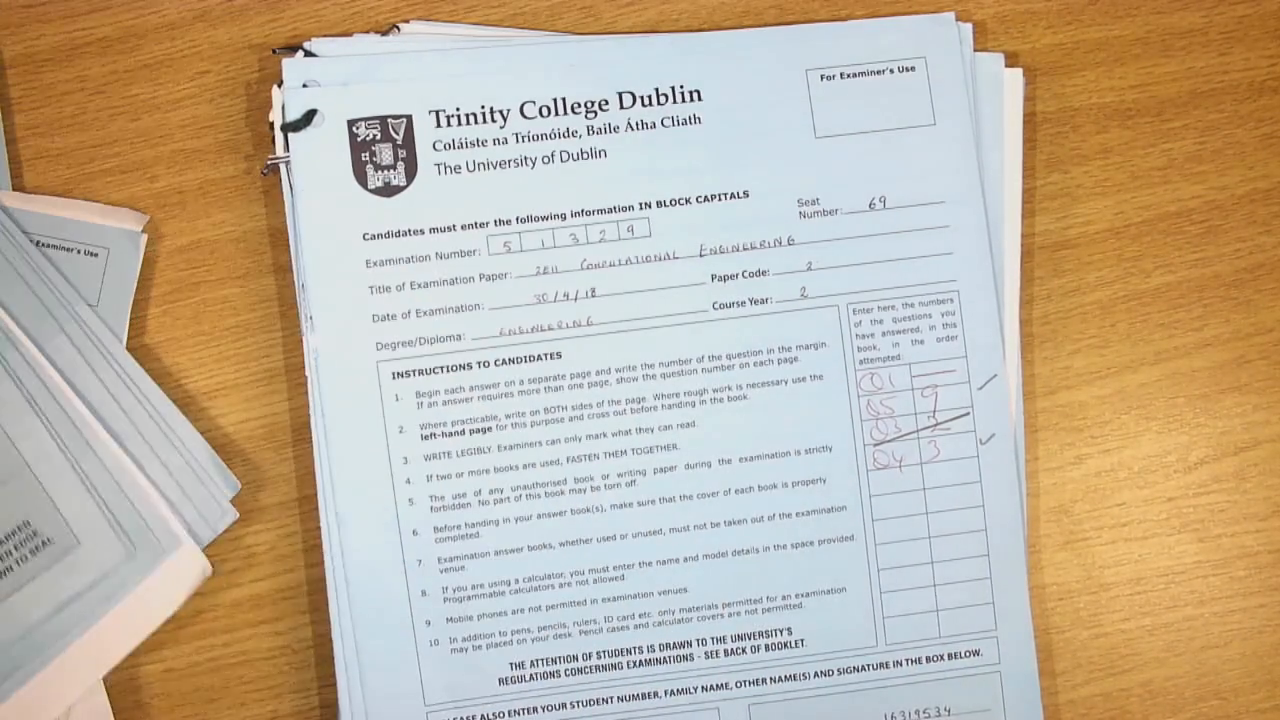 For Examiner's Use
Trinity College Dublin
Coláiste na Tríonóide, Baile Átha Cliath
The University of Dublin
Candidates must enter the following information IN BLOCK CAPITALS
Seat Number: 69
Examination Number: 5 1 3 2 9
Title of Examination Paper: 2E11 COMPUTATIONAL ENGINEERING
Date of Examination: 30/4/18
Paper Code: 2
Degree/Diploma: ENGINEERING
Course Year: 2
INSTRUCTIONS TO CANDIDATES
1. Begin each answer on a separate page and write the number of the question in the margin.
If an answer requires more than one page, show the question number on each page.
2. Where practicable, write on BOTH sides of the page. Where rough work is necessary use the
left-hand page for this purpose and cross out before handing in the book.
3. WRITE LEGIBLY. Examiners can only mark what they can read.
4. If two or more books are used, FASTEN THEM TOGETHER.
5. The use of any unauthorised book or writing paper during the examination is strictly
forbidden. No part of this book may be torn off.
6. Before handing in your answer book(s), make sure that the cover of each book is properly
completed.
7. Examination answer books, whether used or unused, must not be taken out of the examination
venue.
8. If you are using a calculator, you must enter the name and model details in the space provided.
Programmable calculators are not allowed.
9 Mobile phones are not permitted in examination venues.
10. In addition to pens, pencils, rulers, ID card etc. only materials permitted for an examination
may be placed on your desk. Pencil cases and calculator covers are not permitted.
THE ATTENTION OF STUDENTS IS DRAWN TO THE UNIVERSITY'S
REGULATIONS CONCERNING EXAMINATIONS - SEE BACK OF BOOKLET.
Enter here, the numbers
of the questions you
have answered, in this
book, in the order
attempted:
Q1
Q5 9
Q3 2
Q4 3
ALSO ENTER YOUR STUDENT NUMBER, FAMILY NAME, OTHER NAME(S) AND SIGNATURE IN THE BOX BELOW.
16319534
Examiner's Use
WN TO SEAL